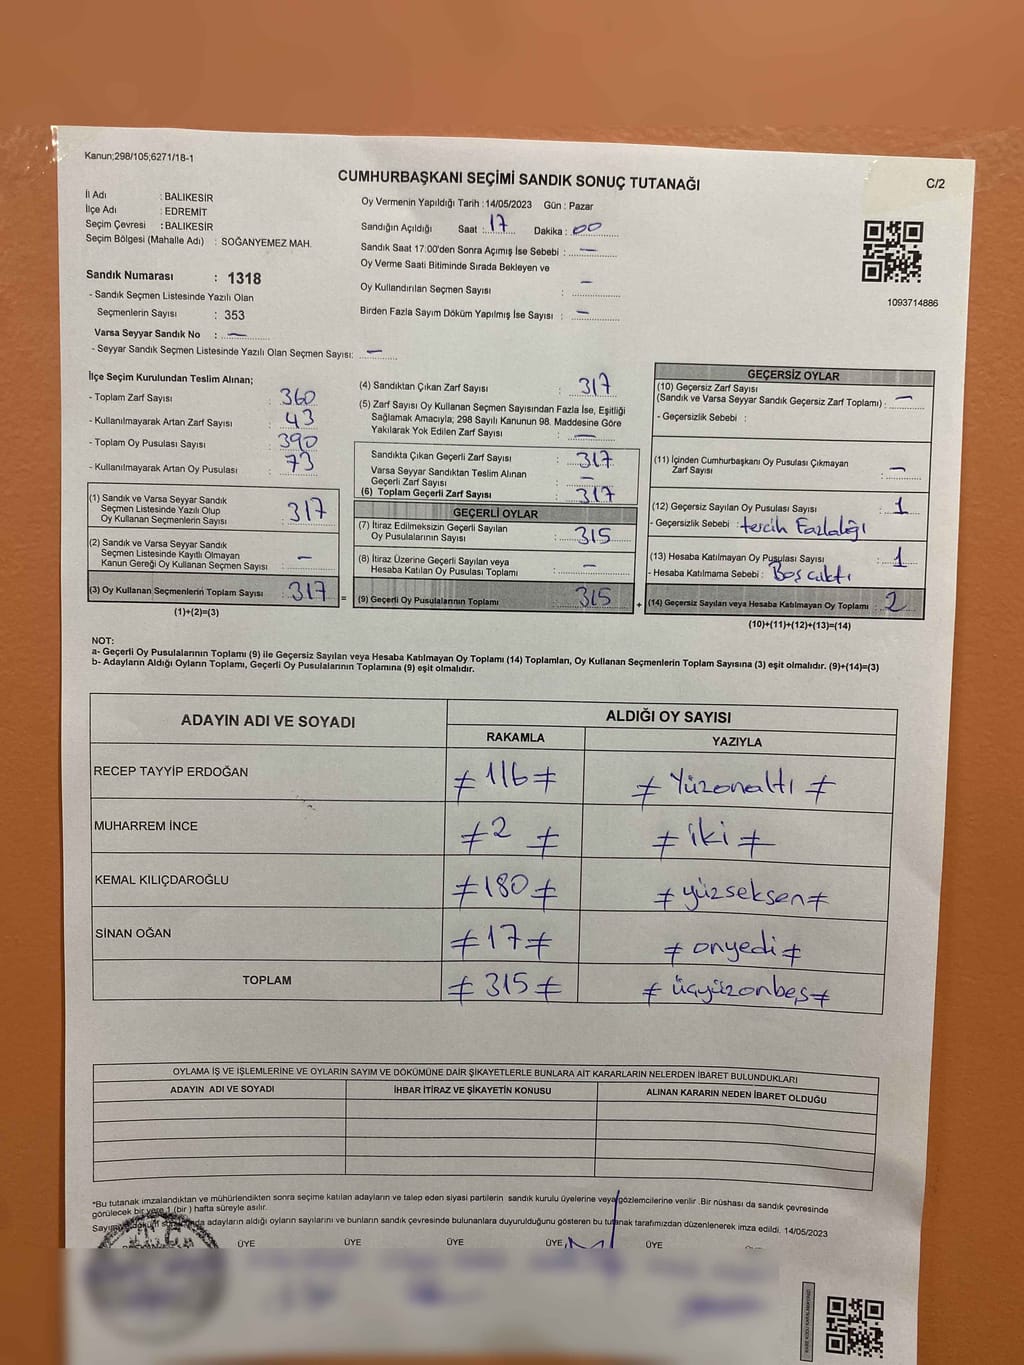 Kanun;298/105;6271/18-1
CUMHURBAŞKANI SEÇİMİ SANDIK SONUÇ TUTANAĞI
C/2
İl Adı : BALIKESİR
İlçe Adı : EDREMIT
Seçim Çevresi : BALIKESİR
Seçim Bölgesi (Mahalle Adı) : SOĞANYEMEZ MAH.
Sandık Numarası : 1318
- Sandık Seçmen Listesinde Yazılı Olan
Seçmenlerin Sayısı : 353
Varsa Seyyar Sandık No : —
- Seyyar Sandık Seçmen Listesinde Yazılı Olan Seçmen Sayısı: —
Oy Vermenin Yapıldığı Tarih : 14/05/2023 Gün : Pazar
Sandığın Açıldığı Saat : 17 Dakika : 00
Sandık Saat 17:00'den Sonra Açımış İse Sebebi : —
Oy Verme Saati Bitiminde Sırada Bekleyen ve
Oy Kullandırılan Seçmen Sayısı : —
Birden Fazla Sayım Döküm Yapılmış İse Sayısı : —
1093714886
İlçe Seçim Kurulundan Teslim Alınan;
- Toplam Zarf Sayısı : 360
- Kullanılmayarak Artan Zarf Sayısı : 43
- Toplom Oy Pusulası Sayısı : 390
- Kullanılmayarak Artan Oy Pusulası : 73
(1) Sandık ve Varsa Seyyar Sandık
Seçmen Listesinde Yazılı Olup
Oy Kullanan Seçmenlerin Sayısı : 317
(2) Sandık ve Varsa Seyyar Sandık
Seçmen Listesinde Kayıtlı Olmayan
Kanun Gereği Oy Kullanan Seçmen Sayısı : —
(3) Oy Kullanan Seçmenlerin Toplam Sayısı : 317 =
(1)+(2)=(3)
(4) Sandıktan Çıkan Zarf Sayısı : 317
(5) Zarf Sayısı Oy Kullanan Seçmen Sayısından Fazla İse, Eşitliği
Sağlamak Amacıyla, 298 Sayılı Kanunun 98. Maddesine Göre
Yakılarak Yok Edilen Zarf Sayısı : —
Sandıkta Çıkan Geçerli Zarf Sayısı : 317
Varsa Seyyar Sandıktan Teslim Alınan
Geçerli Zarf Sayısı : —
(6) Toplam Geçerli Zarf Sayısı : 317
GEÇERLİ OYLAR
(7) İtiraz Edilmeksizin Geçerli Sayılan
Oy Pusulalarının Sayısı : 315
(8) İtiraz Üzerine Geçerli Sayılan veya
Hesaba Katılan Oy Pusulası Toplamı : —
(9) Geçerli Oy Pusulalarının Toplamı : 315 +
GEÇERSİZ OYLAR
(10) Geçersiz Zarf Sayısı
(Sandık ve Varsa Seyyar Sandık Geçersiz Zarf Toplamı) : —
- Geçersizlik Sebebi :
(11) İçinden Cumhurbaşkanı Oy Pusulası Çıkmayan
Zarf Sayısı : —
(12) Geçersiz Sayılan Oy Pusulası Sayısı : 1
- Geçersizlik Sebebi : tercih Fazlalığı
(13) Hesaba Katılmayan Oy Pusulası Sayısı : 1
- Hesaba Katılmama Sebebi : Boş çıktı
(14) Geçersiz Sayılan veya Hesaba Katılmayan Oy Toplamı : 2
(10)+(11)+(12)+(13)=(14)
NOT:
a- Geçerli Oy Pusulalarının Toplamı (9) ile Geçersiz Sayılan veya Hesaba Katılmayan Oy Toplamı (14) Toplamları, Oy Kullanan Seçmenlerin Toplam Sayısına (3) eşit olmalıdır. (9)+(14)=(3)
b- Adayların Aldığı Oyların Toplamı, Geçerli Oy Pusulalarının Toplamına (9) eşit olmalıdır.
ADAYIN ADI VE SOYADI ALDIĞI OY SAYISI
RAKAMLA YAZIYLA
RECEP TAYYİP ERDOĞAN ≠ 116 ≠ ≠ Yüzonaltı ≠
MUHARREM İNCE ≠ 2 ≠ ≠ iki ≠
KEMAL KILIÇDAROĞLU ≠ 180 ≠ ≠ yüzseksen ≠
SİNAN OĞAN ≠ 17 ≠ ≠ onyedi ≠
TOPLAM ≠ 315 ≠ ≠ üçyüzonbeş ≠
OYLAMA İŞ VE İŞLEMLERİNE VE OYLARIN SAYIM VE DÖKÜMÜNE DAİR ŞİKAYETLERLE BUNLARA AİT KARARLARIN NELERDEN İBARET BULUNDUKLARI
ADAYIN ADI VE SOYADI İHBAR İTİRAZ VE ŞİKAYETİN KONUSU ALINAN KARARIN NEDEN İBARET OLDUĞU
*Bu tutanak imzalandıktan ve mühürlendikten sonra seçime katılan adayların ve talep eden siyasi partilerin sandık kurulu üyelerine veya gözlemcilerine verilir .Bir nüshası da sandık çevresinde
görülecek bir yere 1 (bir ) hafta süreyle asılır.
adayların aldığı oyların sayılarını ve bunların sandık çevresinde bulunanlara duyurulduğunu gösteren bu tutanak tarafımızdan düzenlenerek imza edildi. 14/05/2023
ÜYE ÜYE ÜYE ÜYE ÜYE